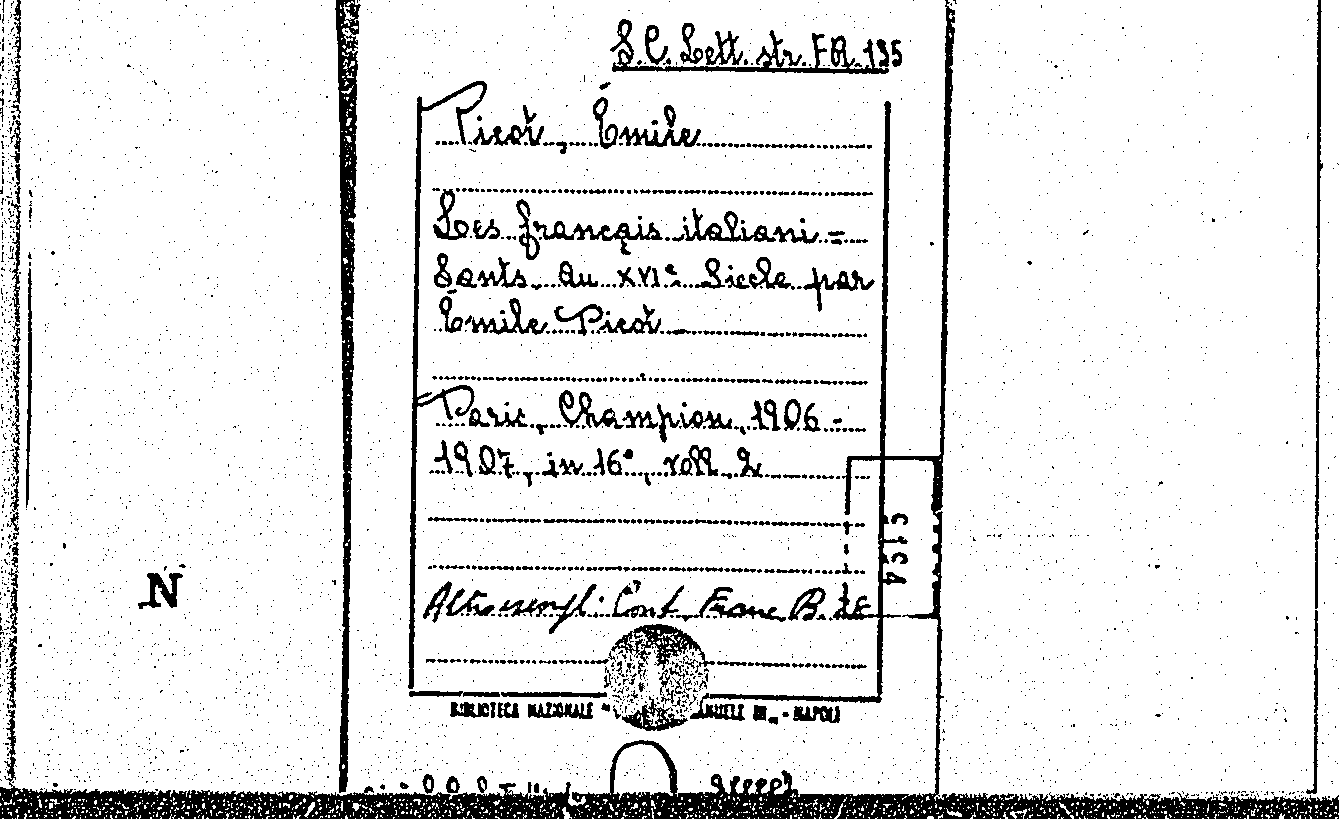 S.C. Lett. str. FR. 135
Picot, Émile
Les français italiani-
sants du XVIe Siècle par
Émile Picot
Paris, Champion, 1906-
1907, in 16°, voll. 2
Altro esempl. Cont. Franc. B.
BIBLIOTECA NAZIONALE " ANUELE III„ - NAPOLI
N